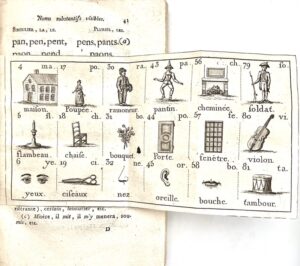 Noms substantifs visibles. 43
SINGULIER, LA, LE. PLURIEL, LES.
pan, pen, pent, pens, pants. (a)
4 ma. 17 po. 30 ra. 43 pa. 56 ch. 79 fo.
maison. Poupée. ramoneur. pantin. cheminée. foldat.
5 fl. 18 ch. 31 bo. 44 po. 57 fe. 80 vi.
flambeau. chaise. bouquet. Porte. fenêtre. violon.
6 ye. 19 ci. 32 ne. 45 or. 58 bo. 81 ta.
yeux. ciseaux nez oreille. bouche. tambour.
(c) Mînes, il mit, il m'y menera, sou-
mis, etc.